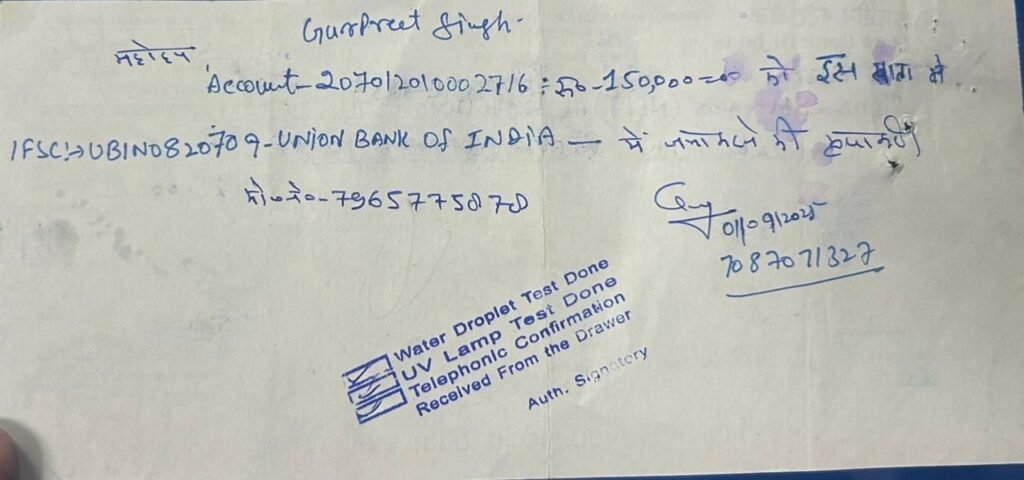 Gurpreet Singh.
महोदय,
Account-207012010002716 : रू०-150,000=00 को इस खाता से
IFSC:→UBIN0820709-UNION BANK Of INDIA — में जमा करने की कृपा करें
मो०नं०-7965775878
01/09/2025
7087071327
Water Droplet Test Done
UV Lamp Test Done
Telephonic Confirmation
Received From the Drawer
Auth. Signatory